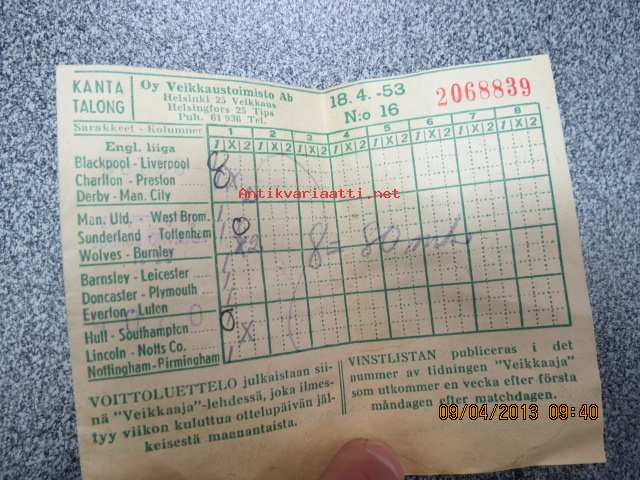 KANTA
TALONG
Oy Veikkaustoimisto Ab
Helsinki 25 Veikkaus
Helsingfors 25 Tips
Puh. 61 936 Tel.
18. 4. -53
N:o 16
2068839
Sarakkeet - Kolumner 1 2 3 4 5 6 7 8
1 X 2 1 X 2 1 X 2 1 X 2 1 X 2 1 X 2 1 X 2 1 X 2
Engl. liiga
Blackpool - Liverpool
Charlton - Preston X
Derby - Man. City
Man. Utd. - West Brom. 1
Sunderland - Tottenham
Wolves - Burnley X2
Barnsley - Leicester 1
Doncaster - Plymouth 1
Everton - Luton 1
Hull - Southampton
Lincoln - Notts Co. X
Nottingham - Birmingham 1
8 = 80 mk
Antikvariaatti.net
VOITTOLUETTELO julkaistaan sii-
nä "Veikkaaja"-lehdessä, joka ilmes-
tyy viikon kuluttua ottelupäivän jäl-
keisestä maanantaista.
VINSTLISTAN publiceras i det
nummer av tidningen "Veikkaaja"
som utkommer en vecka efter första
måndagen efter matchdagen.
09/04/2013 09:40